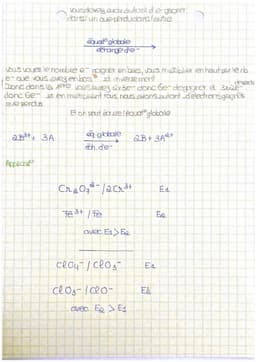 vous devez avoir autant d'e- gagner
dans un que perdu dans l'autre
équat° globale
échange d'e-
vous voyez le nombre e- gagner en bas, vous multiplier en haut par le nb
e- que vous avez en bas et inversement
Donc dans la 1ère vous avez 2x3e- donc 6e- de gagner et 3x2e-
donc 6e- et en multipliant tous, nous avons autant d'électrons gagnés
que perdus.
Et on peut écrire l'équat° globale
2B3+ + 3A éq globale 2B + 3A2+
éch. d'e-
Applicat°
Cr2O7 2- / 2Cr3+ E1
Fe3+ / Fe E2
avec E1 > E2
ClO4- / ClO3- E1
ClO3- / ClO- E2
avec E2 > E1